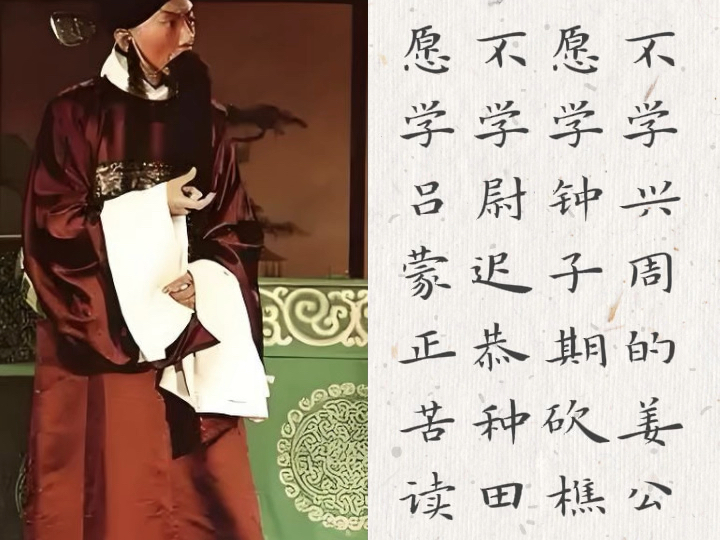 不学兴周的姜公
愿学钟子期砍樵
不学尉迟恭种田
愿学吕蒙正苦读